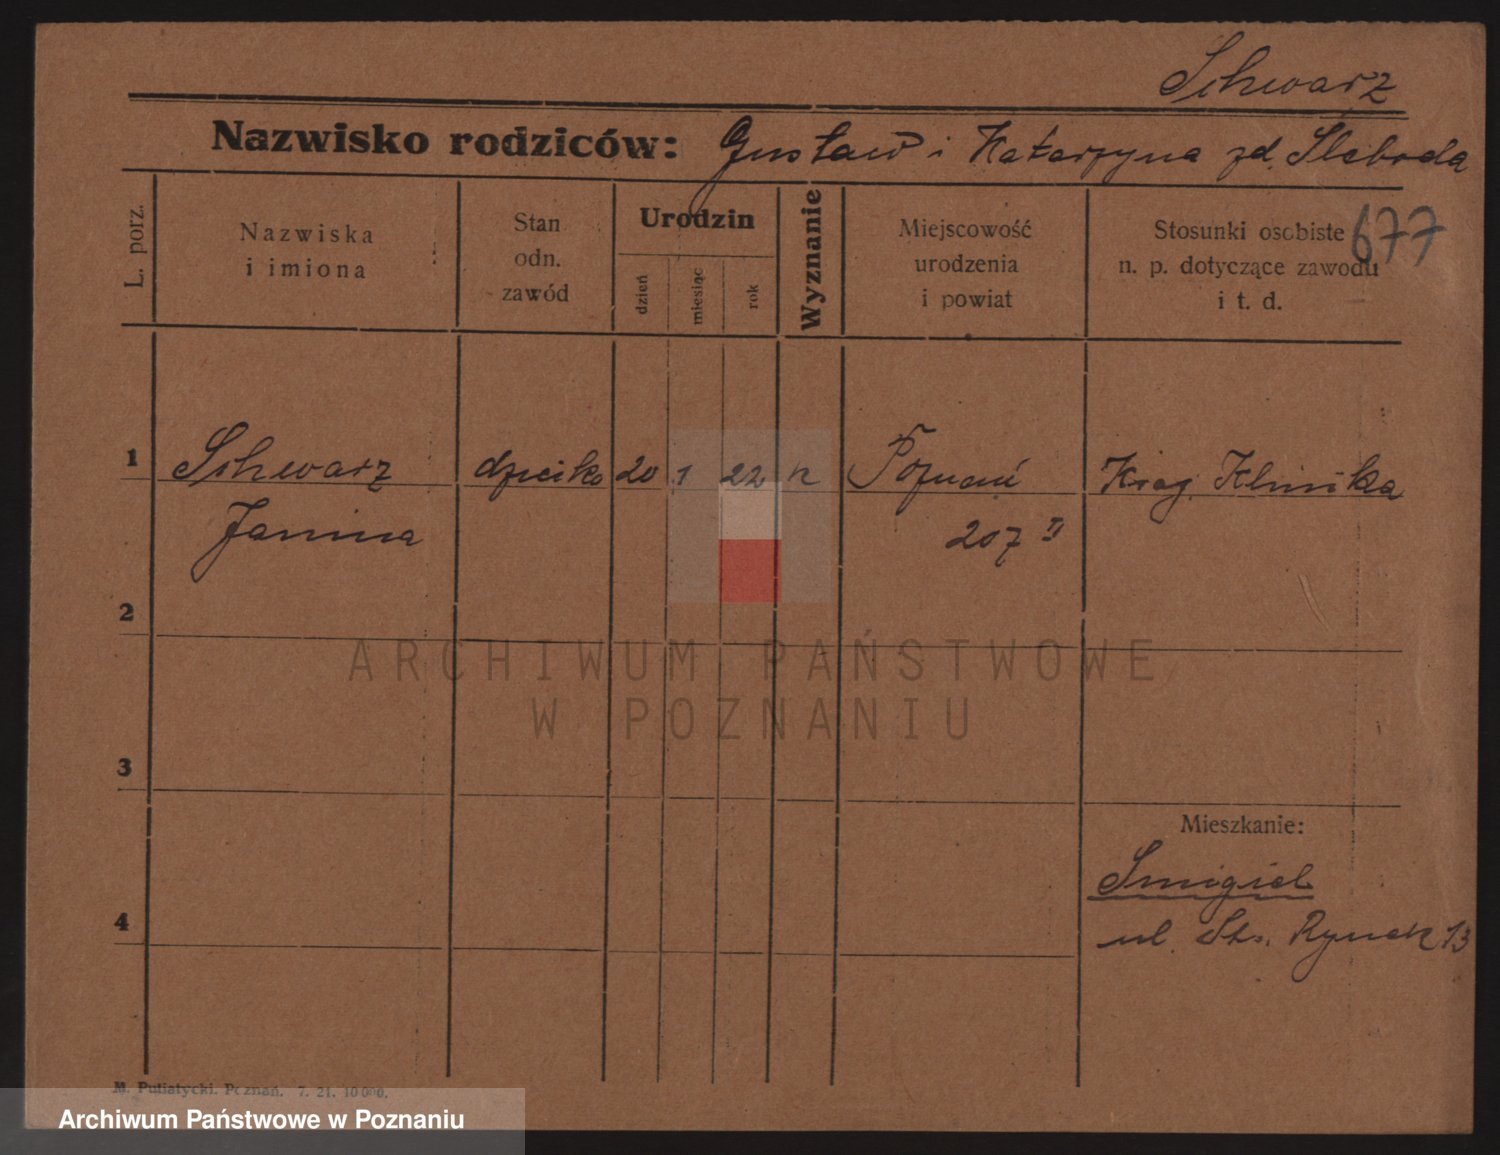 Schwarz
Nazwisko rodziców: Gustaw i Katarzyna zd. Sleboda
L. porz.
Nazwiska
i imiona
Stan
odn.
zawód
Urodzin
dzień
miesiąc
rok
Wyznanie
Miejscowość
urodzenia
i powiat
Stosunki osobiste
n. p. dotyczące zawodu
i t. d.
677
1 Schwarz dziecko 20 1 22 k Poznań Kraj. Klinika
Janina 207 II
2
3
Mieszkanie:
Smigiel
4
ul. Str. Rynek 13
M. Putiatycki. Poznań. 7. 21. 10 000.
ARCHIWUM PAŃSTWOWE
W POZNANIU
Archiwum Państwowe w Poznaniu